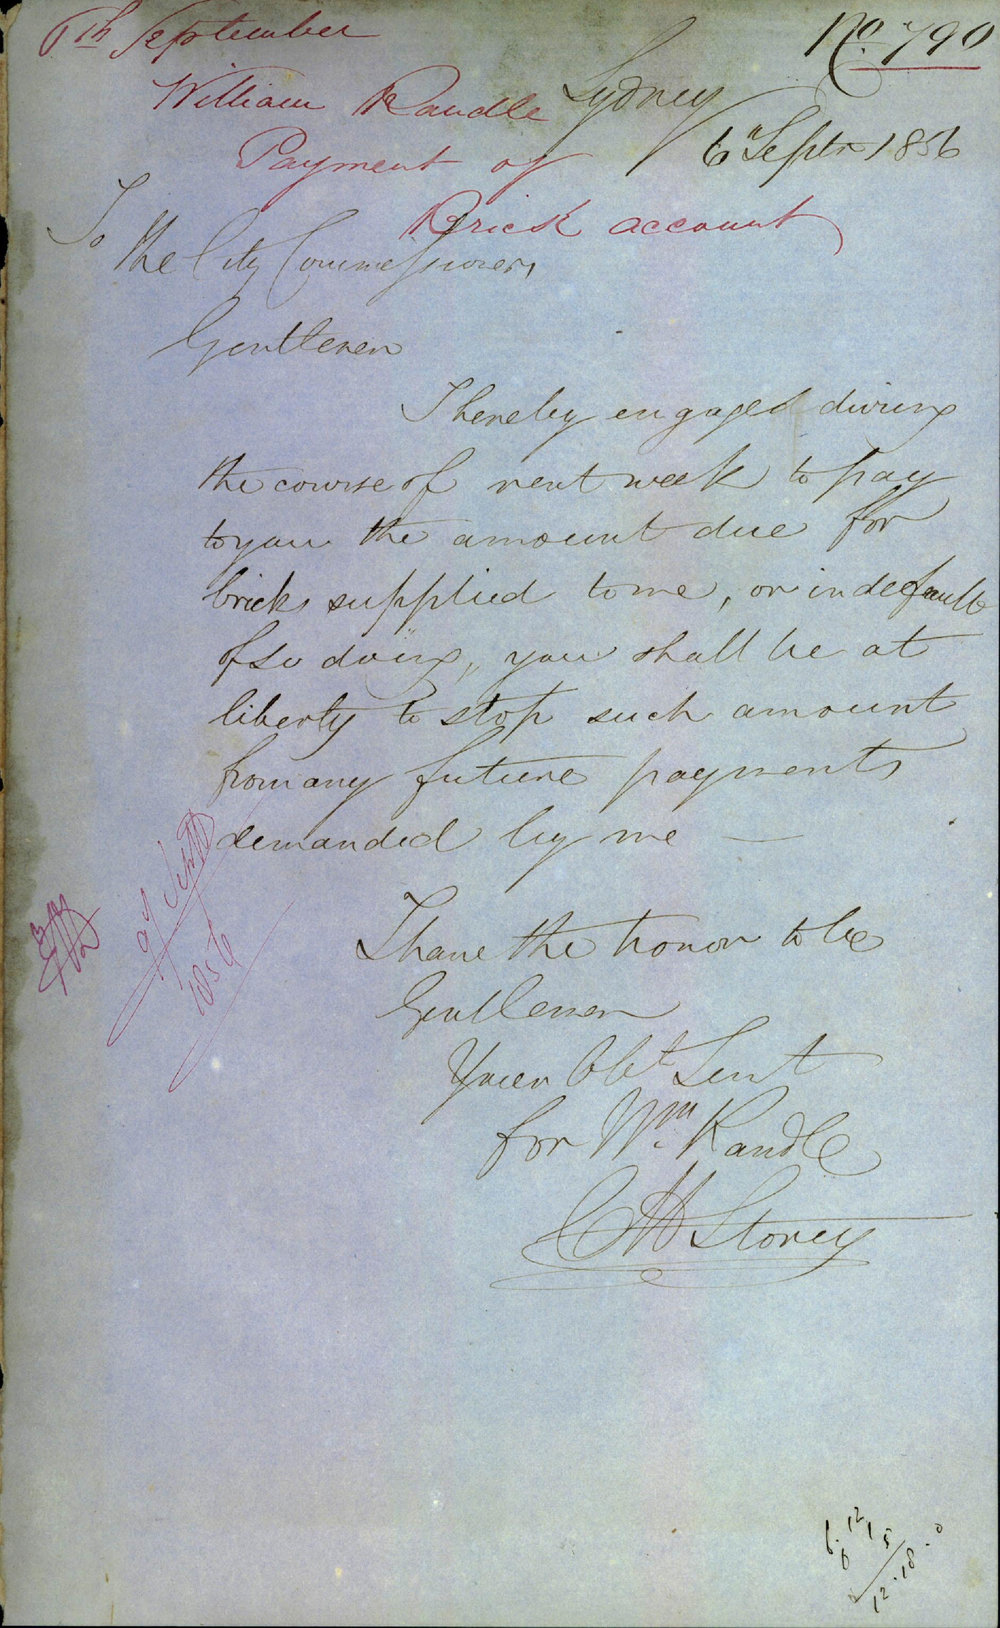 6th September
No. 790
William Randle
Payment of
Brick account
Sydney
6 Septr 1856
To
the City Commissioners
Gentlemen
I hereby engaged during
the course of next week to pay
to you the amount due for
bricks supplied to me, or in default
of so doing, you shall be at
liberty to stop such amount
from any future payments
demanded by me —
I have the honor to be
Gentlemen
Your Obt Servt
for Wm. Randle
C H Storey
Sept
1856
12.18.0